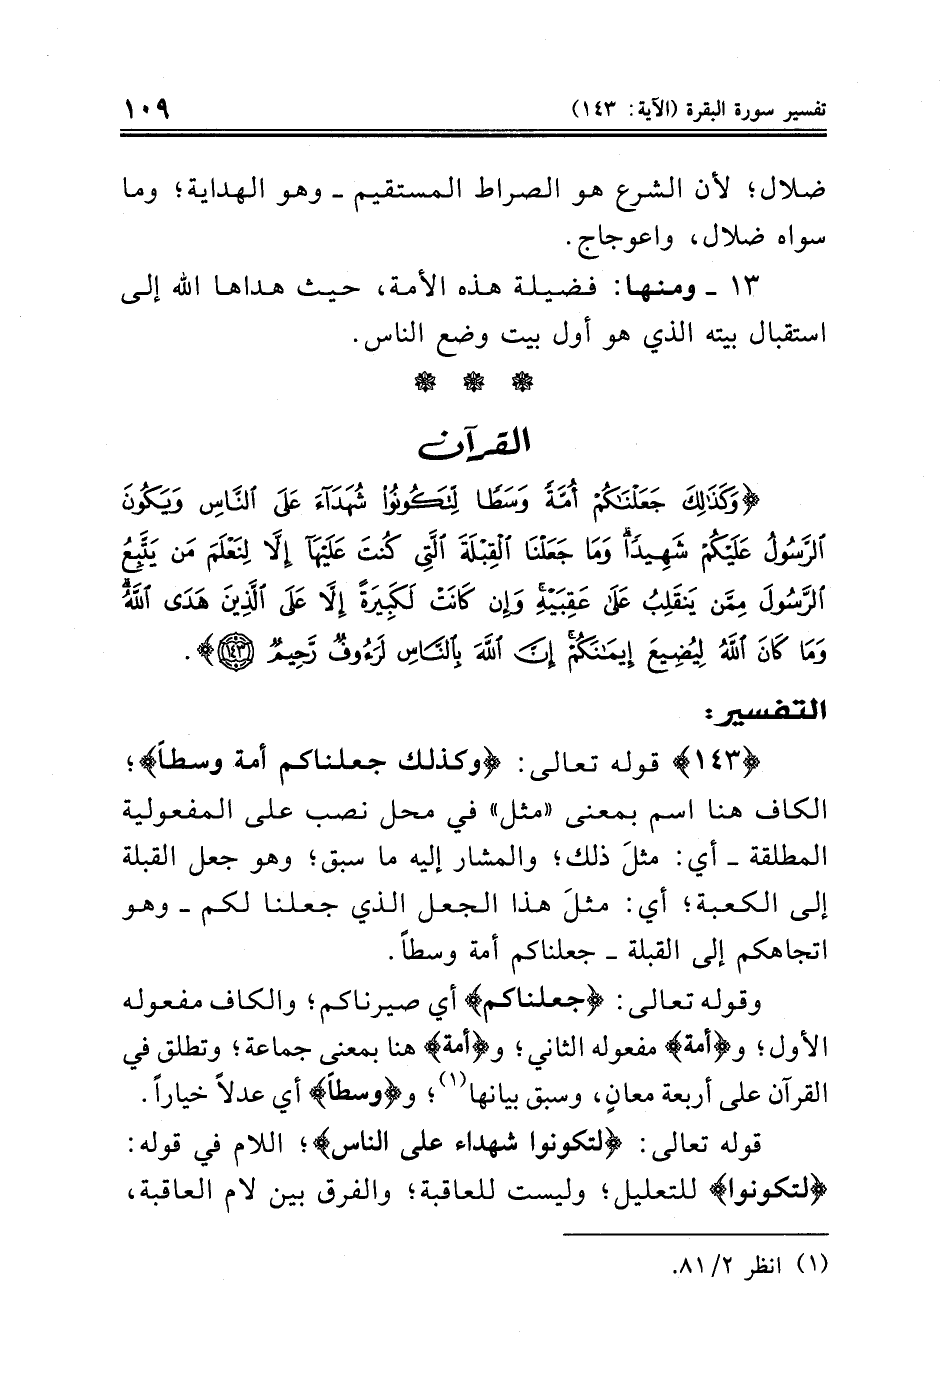 تفسير سورة البقرة (الآية: ١٤٣) ١٠٩
ضلال؛ لأن الشرع هو الصراط المستقيم ـ وهو الهداية؛ وما
سواه ضلال، واعوجاج.
١٣ ـ ومنها: فضيلة هذه الأمة، حيث هداها الله إلى
استقبال بيته الذي هو أول بيت وضع الناس.
القرآن
﴿وَكَذَٰلِكَ جَعَلْنَٰكُمْ أُمَّةً وَسَطًا لِّتَكُونُوا۟ شُهَدَآءَ عَلَى ٱلنَّاسِ وَيَكُونَ
ٱلرَّسُولُ عَلَيْكُمْ شَهِيدًا ۗ وَمَا جَعَلْنَا ٱلْقِبْلَةَ ٱلَّتِى كُنتَ عَلَيْهَآ إِلَّا لِنَعْلَمَ مَن يَتَّبِعُ
ٱلرَّسُولَ مِمَّن يَنقَلِبُ عَلَىٰ عَقِبَيْهِ ۚ وَإِن كَانَتْ لَكَبِيرَةً إِلَّا عَلَى ٱلَّذِينَ هَدَى ٱللَّهُ ۗ
وَمَا كَانَ ٱللَّهُ لِيُضِيعَ إِيمَٰنَكُمْ ۚ إِنَّ ٱللَّهَ بِٱلنَّاسِ لَرَءُوفٌ رَّحِيمٌ ١٤٣﴾.
التفسير:
﴿١٤٣﴾ قوله تعالى: ﴿وكذلك جعلناكم أمة وسطاً﴾؛
الكاف هنا اسم بمعنى «مثل» في محل نصب على المفعولية
المطلقة ـ أي: مثلَ ذلك؛ والمشار إليه ما سبق؛ وهو جعل القبلة
إلى الكعبة؛ أي: مثلَ هذا الجعل الذي جعلنا لكم ـ وهو
اتجاهكم إلى القبلة ـ جعلناكم أمة وسطاً.
وقوله تعالى: ﴿جعلناكم﴾ أي صيرناكم؛ والكاف مفعوله
الأول؛ و﴿أمة﴾ مفعوله الثاني؛ و﴿أمة﴾ هنا بمعنى جماعة؛ وتطلق في
القرآن على أربعة معانٍ، وسبق بيانها(١)؛ و﴿وسطاً﴾ أي عدلاً خياراً.
قوله تعالى: ﴿لتكونوا شهداء على الناس﴾؛ اللام في قوله:
﴿لتكونوا﴾ للتعليل؛ وليست للعاقبة؛ والفرق بين لام العاقبة،
(١) انظر ٨١/٢.